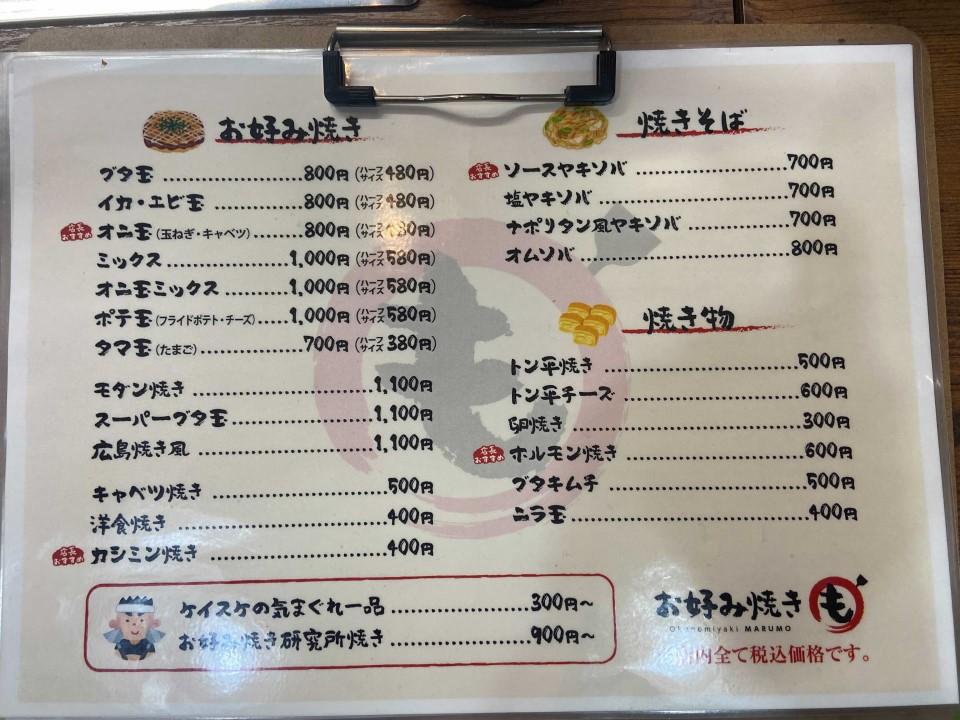 お好み焼き
ブタ玉 800円 (ハーフサイズ480円)
イカ・エビ玉 800円 (ハーフサイズ480円)
店長おすすめ オニ玉(玉ねぎ・キャベツ) 800円 (ハーフサイズ480円)
ミックス 1,000円 (ハーフサイズ580円)
オニ玉ミックス 1,000円 (ハーフサイズ580円)
ポテ玉(フライドポテト・チーズ) 1,000円 (ハーフサイズ580円)
タマ玉(たまご) 700円 (ハーフサイズ380円)
モダン焼き 1,100円
スーパーブタ玉 1,100円
広島焼き風 1,100円
キャベツ焼き 500円
洋食焼き 400円
店長おすすめ カシミン焼き 400円
ケイスケの気まぐれ一品 300円~
お好み焼き研究所焼き 900円~
焼きそば
店長おすすめ ソースヤキソバ 700円
塩ヤキソバ 700円
ナポリタン風ヤキソバ 700円
オムソバ 800円
焼き物
トン平焼き 500円
トン平チーズ 600円
卵焼き 300円
店長おすすめ ホルモン焼き 600円
ブタキムチ 500円
ニラ玉 400円
お好み焼き も
Okonomiyaki MARUMO
店内全て税込価格です。